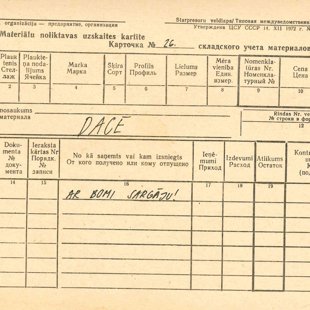 organizācija — предприятие, организация
Starpresoru veidlapa/Типовая междуведомственная
Утверждена ЦСУ СССР 14. XII 1972 г. №
Materiālu noliktavas uzskaites kartīte
Карточка № 26. складского учета материалов
Plauktenis Стеллаж
Plaukteņa nodalījums Ячейка
Marka Марка
Šķira Сорт
Profils Профиль
Lielums Размер
Mēra vienība Един. измер.
Nomenklatūras Nr. Номенклатурный №
Cena Цена
1 2 3 4 5 6 7 8 9
nosaukums DACE
материала
Rindas Nr. ve
№ строки в фор
12
Dokumenta № документа
Ieraksta kārtas Nr Порядк. № записи
No kā saņemts vai kam izsniegts От кого получено или кому отпущено
Ieņēmumi Приход
Izdevumi Расход
Atlikums Остаток
14 15 16 17 18 19
AR BOMI SARGĀJU!